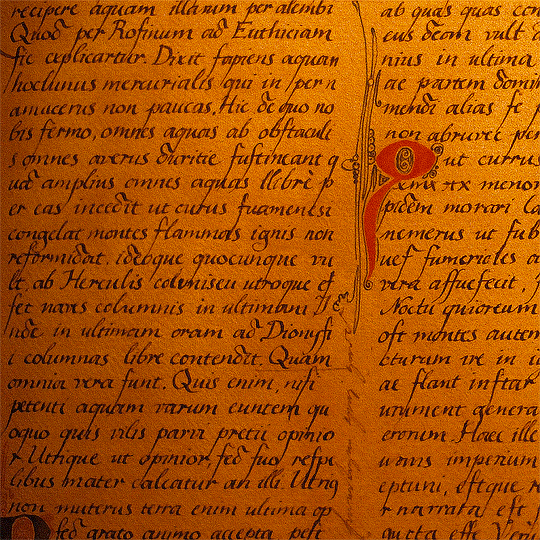 recipere aquam illarum per alembi
Quod per Rofinum ad Euthiciam
sic explicartur. Dixit sapiens aquam
mercurialis qui in per n
non paucas. Hic de quo no
bis sermo, omnes aquas ab obstaculi
s omnes averus duritie sustineant q
uod amplius omnes aquas libre p
er eas incedit ut currus
congelat montes flammas ignis non
reformidat. ideoque quocunque vu
lt, ab Herculis columnisu utroque es
set naves columnis in ultimam
nde in ultimam oram ad Dionysi
i columnas libre contendit. Quam
omnia vera sunt. Quis enim, nisi
petenti aquam varum euntem qu
oquo quis vilis parvi pretii opinio
r Utrique ut opinior, sed suo respe
libus mater calcatur an illi. Utrq
non muterus terra enim ultima op
sed grato animo accepta peti
ab quas quas con
eus deum vult a
nius in ultima
ae partem domin
mendi alias se p
non abruvec per
ut currus
rx menor
pidem morari la
nemerus ut sub
uef fumeriales a
vera assuefecit,
Noctu quioreum
oft montes autem
cturum ire in i
ae flant instar
urument genera
erorum. Haec ille
imperium
eptuni, estque
r narrata est
esse